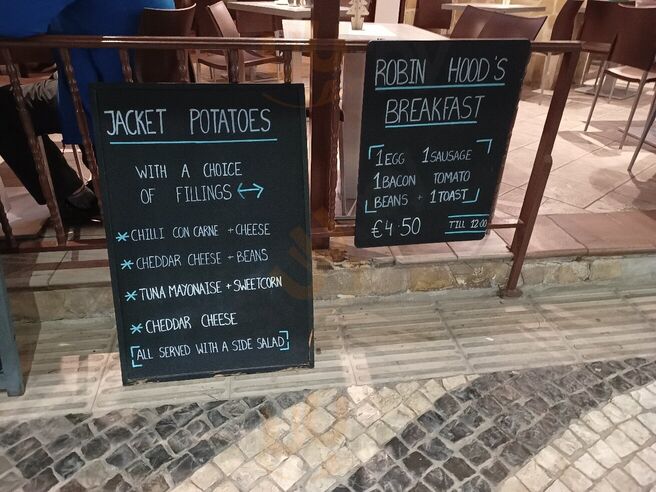 JACKET POTATOES
WITH A CHOICE
OF FILLINGS ↔
* CHILLI CON CARNE + CHEESE
* CHEDDAR CHEESE + BEANS
* TUNA MAYONAISE + SWEETCORN
* CHEDDAR CHEESE
[ALL SERVED WITH A SIDE SALAD]
ROBIN HOOD'S
BREAKFAST
1EGG 1SAUSAGE
1BACON TOMATO
BEANS + 1TOAST
€4.50 TILL 12:00